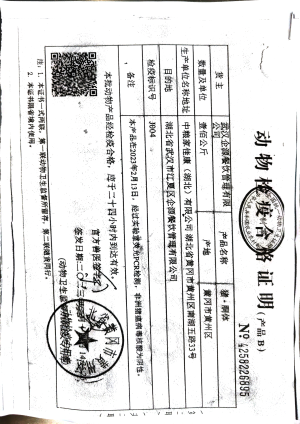 动物检疫合格证明（产品 B）
№ 4258226895
货主 武汉企源餐饮管理有限公司 产品名称 猪·胴体
数量及单位 壹佰公斤 产地 黄冈市黄州区
生产单位名称地址 中粮家佳康（湖北）有限公司 湖北省黄冈市黄州区南湖五路33号
目的地 湖北省武汉市江夏区企源餐饮管理有限公司
检疫标识号 J004
备注 本产品在2023年2月13日，经过实验室荧光PCR检测，非洲猪瘟病毒核酸为阴性。
本批动物产品经检疫合格，应于二十四小时内到达有效。
官方兽医签字：
签发日期：二〇二三年
（动物卫生监督
注：1．本证书一式两联，第一联动物卫生监督所留存，第二联随货同行。
2．本证书限省境内使用。